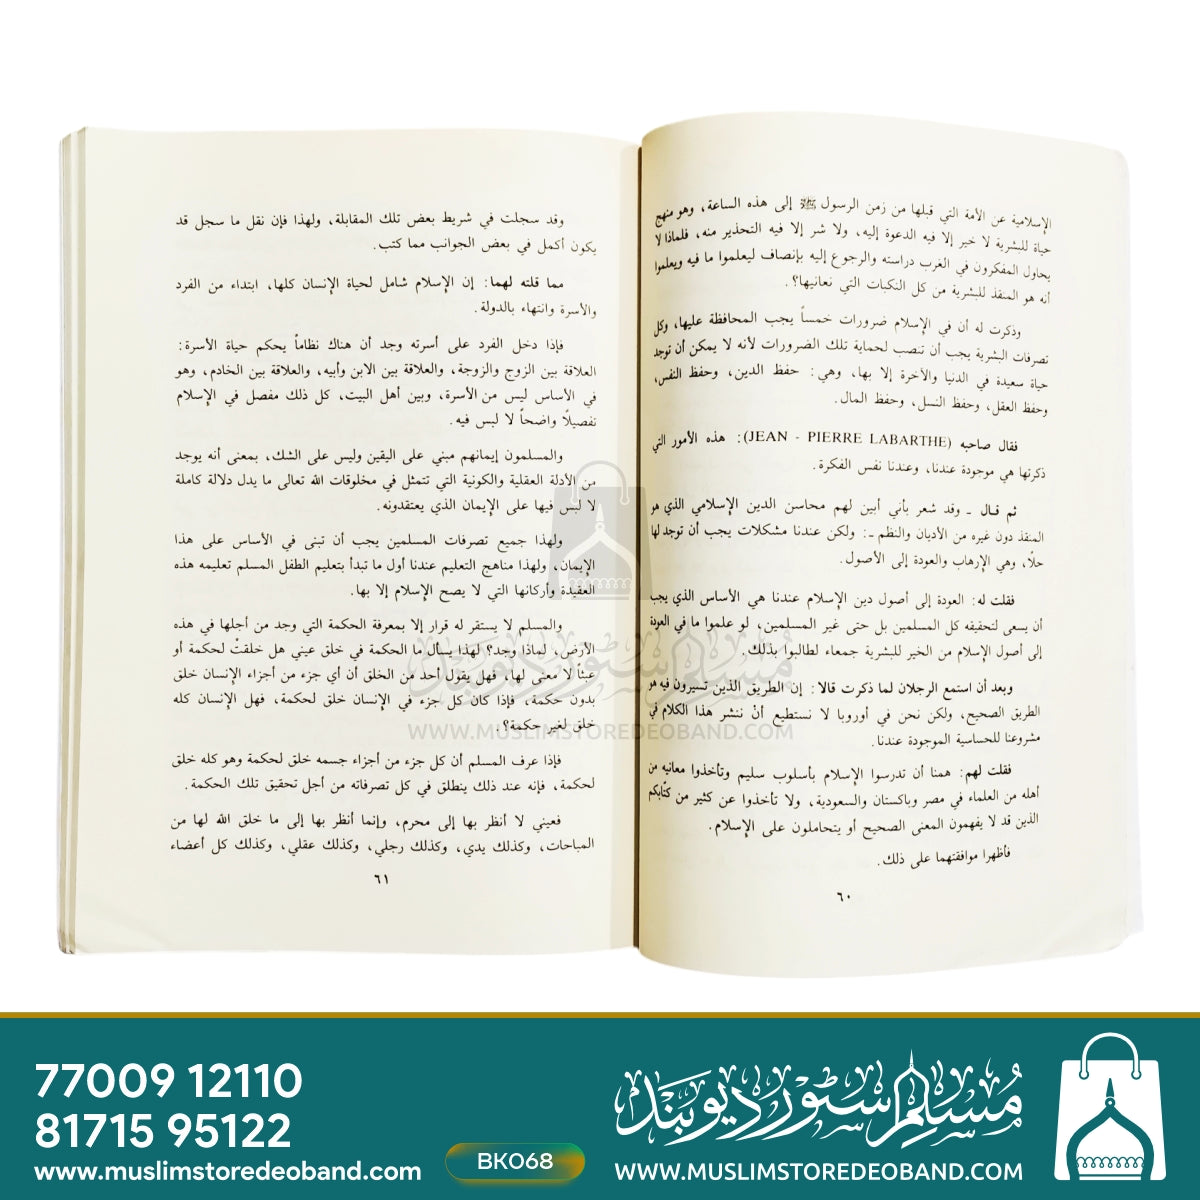 الإسلامية عن الأمة التي قبلها من زمن الرسول ﷺ إلى هذه الساعة، وهو منهج
حياة للبشرية لا خير إلا فيه الدعوة إليه، ولا شر إلا فيه التحذير منه، فلماذا لا
يحاول المفكرون في الغرب دراسته والرجوع إليه بإنصاف ليعلموا ما فيه ويعلموا
أنه هو المنقذ للبشرية من كل النكبات التي نعانيها؟.
وذكرت له أن في الإسلام ضرورات خمساً يجب المحافظة عليها، وكل
تصرفات البشرية يجب أن تنصب لحماية تلك الضرورات لأنه لا يمكن أن توجد
حياة سعيدة في الدنيا والآخرة إلا بها، وهي: حفظ الدين، وحفظ النفس،
وحفظ العقل، وحفظ النسل، وحفظ المال.
فقال صاحبه (JEAN - PIERRE LABARTHE): هذه الأمور التي
ذكرتها هي موجودة عندنا، وعندنا نفس الفكرة.
ثم قال ـ وقد شعر بأني أبين لهم محاسن الدين الإسلامي الذي هو
المنقذ دون غيره من الأديان والنظم ـ: ولكن عندنا مشكلات يجب أن توجد لها
حلًا، وهي الإرهاب والعودة إلى الأصول.
فقلت له: العودة إلى أصول دين الإسلام عندنا هي الأساس الذي يجب
أن يسعى لتحقيقه كل المسلمين بل حتى غير المسلمين، لو علموا ما في العودة
إلى أصول الإسلام من الخير للبشرية جمعاء لطالبوا بذلك.
وبعد أن استمع الرجلان لما ذكرت قالا: إن الطريق الذين تسيرون فيه هو
الطريق الصحيح، ولكن نحن في أوروبا لا نستطيع أنْ ننشر هذا الكلام في
مشروعنا للحساسية الموجودة عندنا.
فقلت لهم: همنا أن تدرسوا الإسلام بأسلوب سليم وتأخذوا معانيه من
أهله من العلماء في مصر وباكستان والسعودية، ولا تأخذوا عن كثير من كتّابكم
الذين قد لا يفهمون المعنى الصحيح أو يتحاملون على الإسلام.
فأظهرا موافقتهما على ذلك.
٦٠
وقد سجلت في شريط بعض تلك المقابلة، ولهذا فإن نقل ما سجل قد
يكون أكمل في بعض الجوانب مما كتب.
مما قلته لهما: إن الإسلام شامل لحياة الإنسان كلها، ابتداء من الفرد
والأسرة وانتهاء بالدولة.
فإذا دخل الفرد على أسرته وجد أن هناك نظاماً يحكم حياة الأسرة:
العلاقة بين الزوج والزوجة، والعلاقة بين الابن وأبيه، والعلاقة بين الخادم، وهو
في الأساس ليس من الأسرة، وبين أهل البيت، كل ذلك مفصل في الإسلام
تفصيلًا واضحاً لا لبس فيه.
والمسلمون إيمانهم مبني على اليقين وليس على الشك، بمعنى أنه يوجد
من الأدلة العقلية والكونية التي تتمثل في مخلوقات الله تعالى ما يدل دلالة كاملة
لا لبس فيها على الإيمان الذي يعتقدونه.
ولهذا جميع تصرفات المسلمين يجب أن تبنى في الأساس على هذا
الإيمان، ولهذا مناهج التعليم عندنا أول ما تبدأ بتعليم الطفل المسلم تعليمه هذه
العقيدة وأركانها التي لا يصح الإسلام إلا بها.
والمسلم لا يستقر له قرار إلا بمعرفة الحكمة التي وجد من أجلها في هذه
الأرض، لماذا وجد؟ لهذا يسأل ما الحكمة في خلق عيني هل خلقتْ لحكمة أو
عبثاً لا معنى لها، فهل يقول أحد من الخلق أن أي جزء من أجزاء الإنسان خلق
بدون حكمة، فإذا كان كل جزء في الإنسان خلق لحكمة، فهل الإنسان كله
خلق لغير حكمة؟.
فإذا عرف المسلم أن كل جزء من أجزاء جسمه خلق لحكمة وهو كله خلق
لحكمة، فإنه عند ذلك ينطلق في كل تصرفاته من أجل تحقيق تلك الحكمة.
فعيني لا أنظر بها إلى محرم، وإنما أنظر بها إلى ما خلق الله لها من
المباحات، وكذلك يدي، وكذلك رجلي، وكذلك عقلي، وكذلك كل أعضاء
٦١
مسلم سٹور دیوبند
WWW.MUSLIMSTOREDEOBAND.COM
77009 12110
81715 95122
www.muslimstoredeoband.com
BK068
مسلم سٹور دیوبند
WWW.MUSLIMSTOREDEOBAND.COM